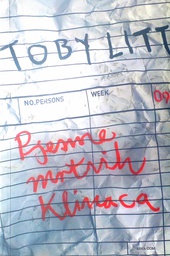 TOBY LITT
NO.PERSONS WEEK 09
Pjesme
mrtvih
Klinaca